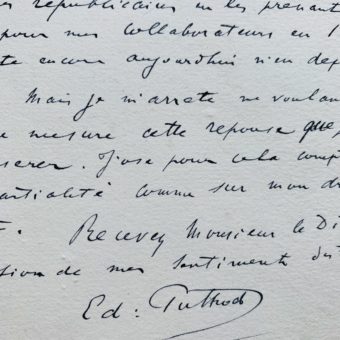 républicains en les prenant
pour mes collaborateurs en
encore aujourd'hui rien
Mais je m'arrete ne voulan
mesure cette reponse que
serer. J'ose pour cela comp
artialité comme sur mon dr
Recevez Monsieur le Di
sion de mes sentiments dis
Ed: